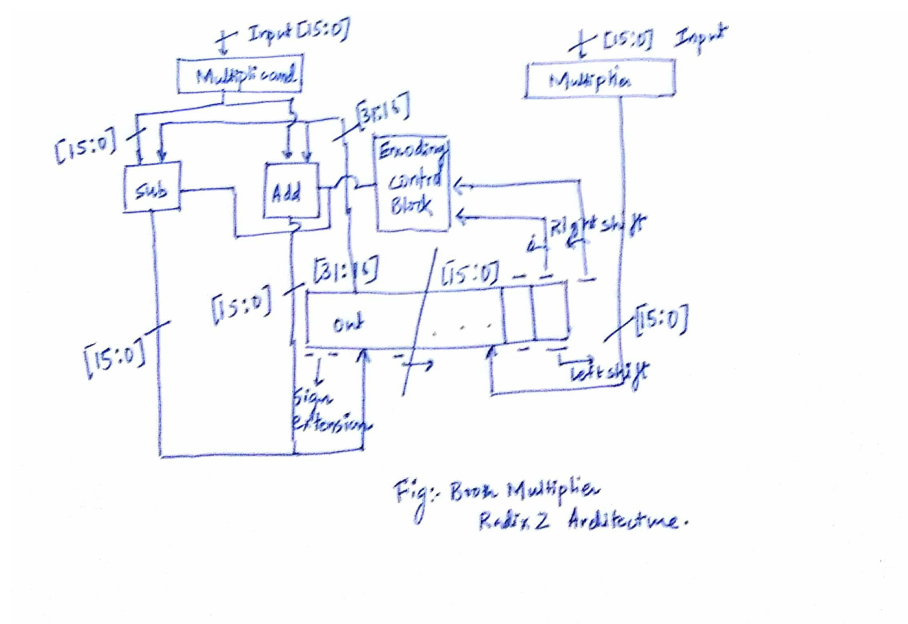 Input [15:0]
[15:0] Input
Multiplicand
Multiplier
[31:16]
[15:0]
Encoding
control
Block
Sub
Add
Right shift
[31:16]
[15:0]
[15:0]
[15:0]
out
. . .
[15:0]
Left shift
Sign
extension
Fig:- Booth Multiplier
Radix 2 Architecture.